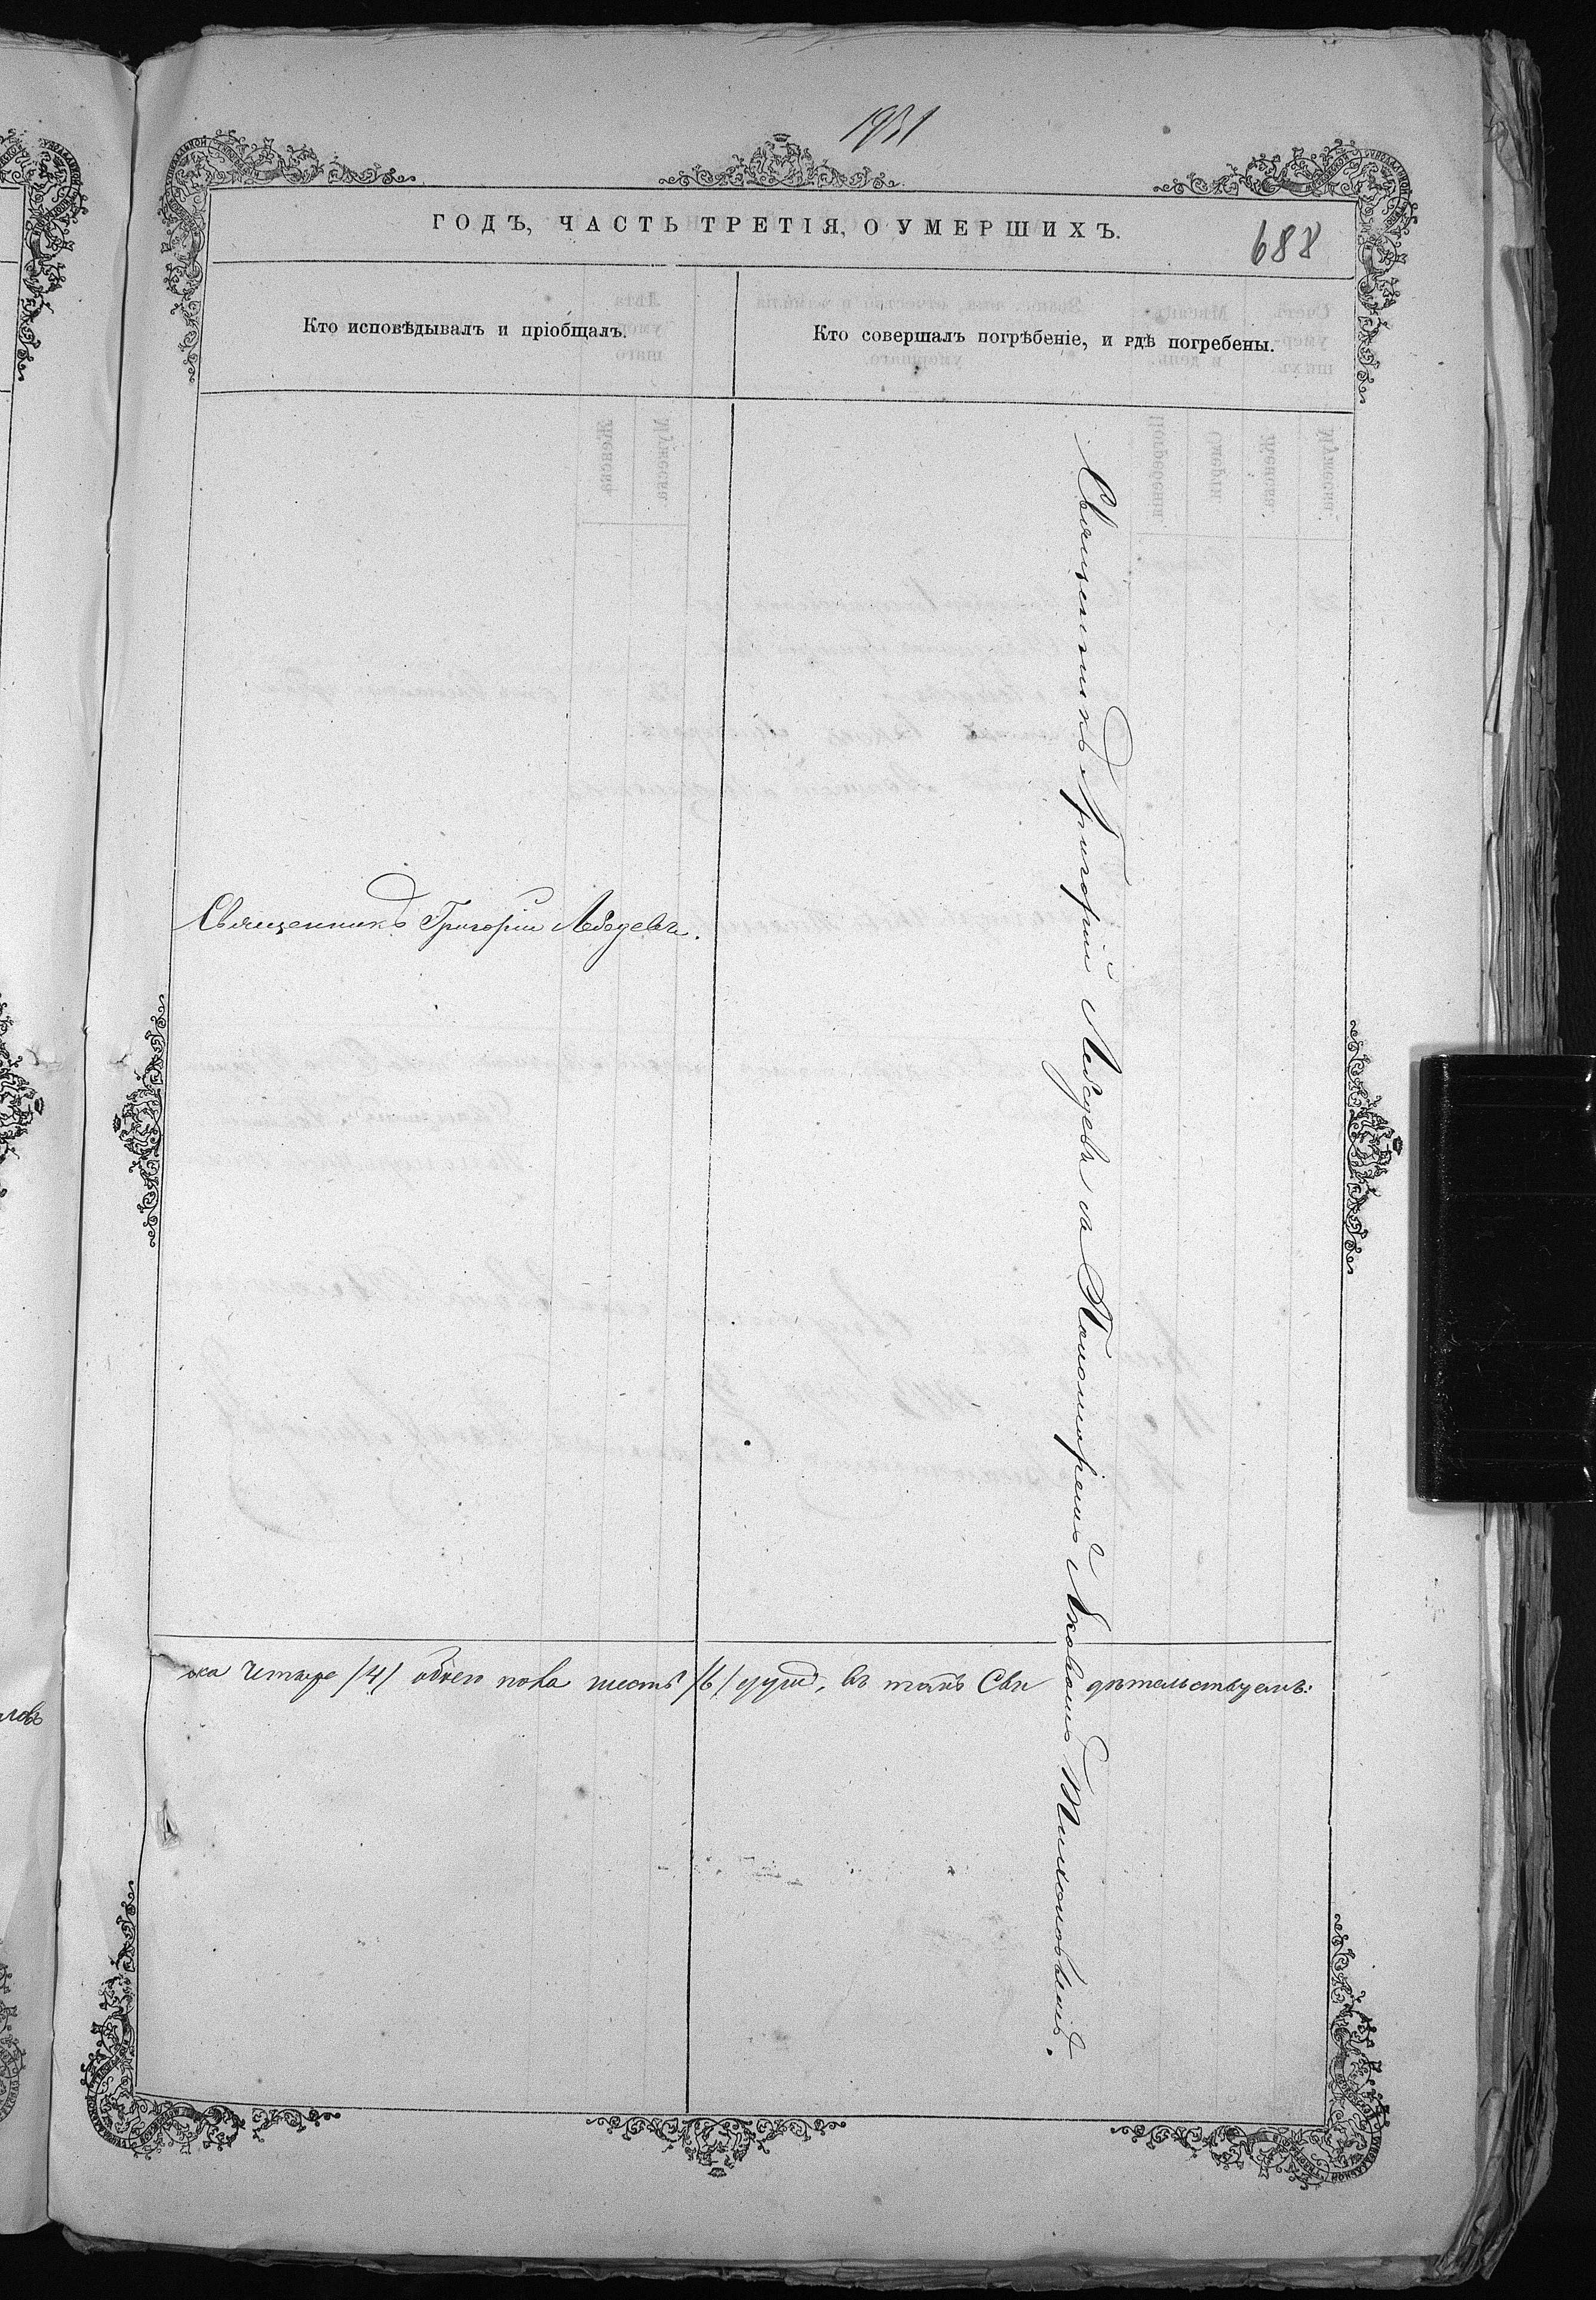 1931
ГОДЪ, ЧАСТЬ ТРЕТІЯ, О УМЕРШИХЪ.
688
Кто исповѣдывалъ и пріобщалъ.
Кто совершалъ погрѣбеніе, и гдѣ погребены.
Священникъ Григорій Лебедевъ.
Священникъ Григорій Лебедевъ съ Пономоремъ Яковомъ Тихоновымъ.
ска четыре /4/ обоего пола шесть /6/ душъ, въ томъ Сви дѣтельствуемъ: